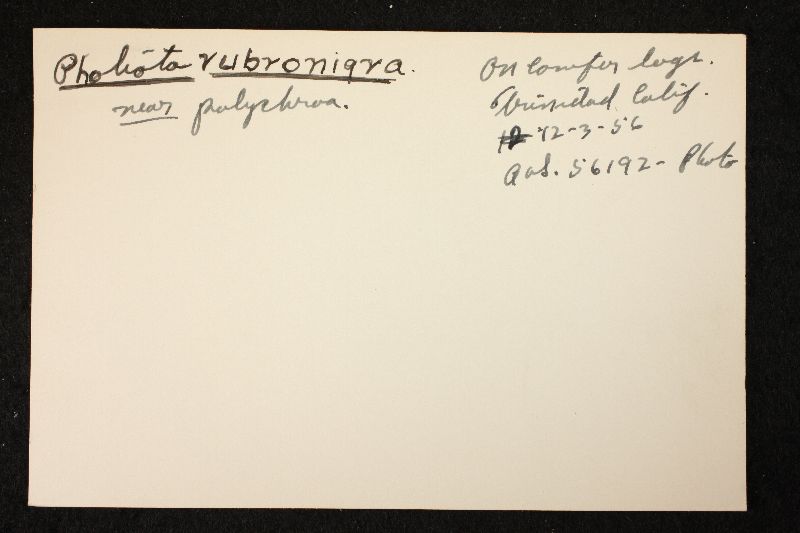 Pholiota rubronigra.
near polychroa.
On conifer logs.
Trinidad Calif.
12-3-56
AHS. 56192- Photo